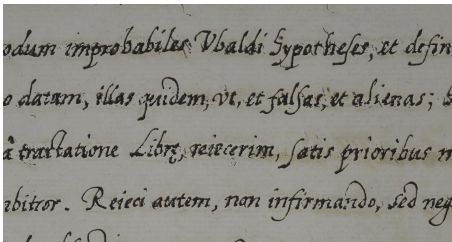 odum improbabiles Vbaldi Hypotheses, et defin
o datam, illas quidem, vt, et falsas, et alienas;
à tractatione Librę, reiecerim, satis prioribus
rbitror. Reieci autem, non infirmando, sed neg